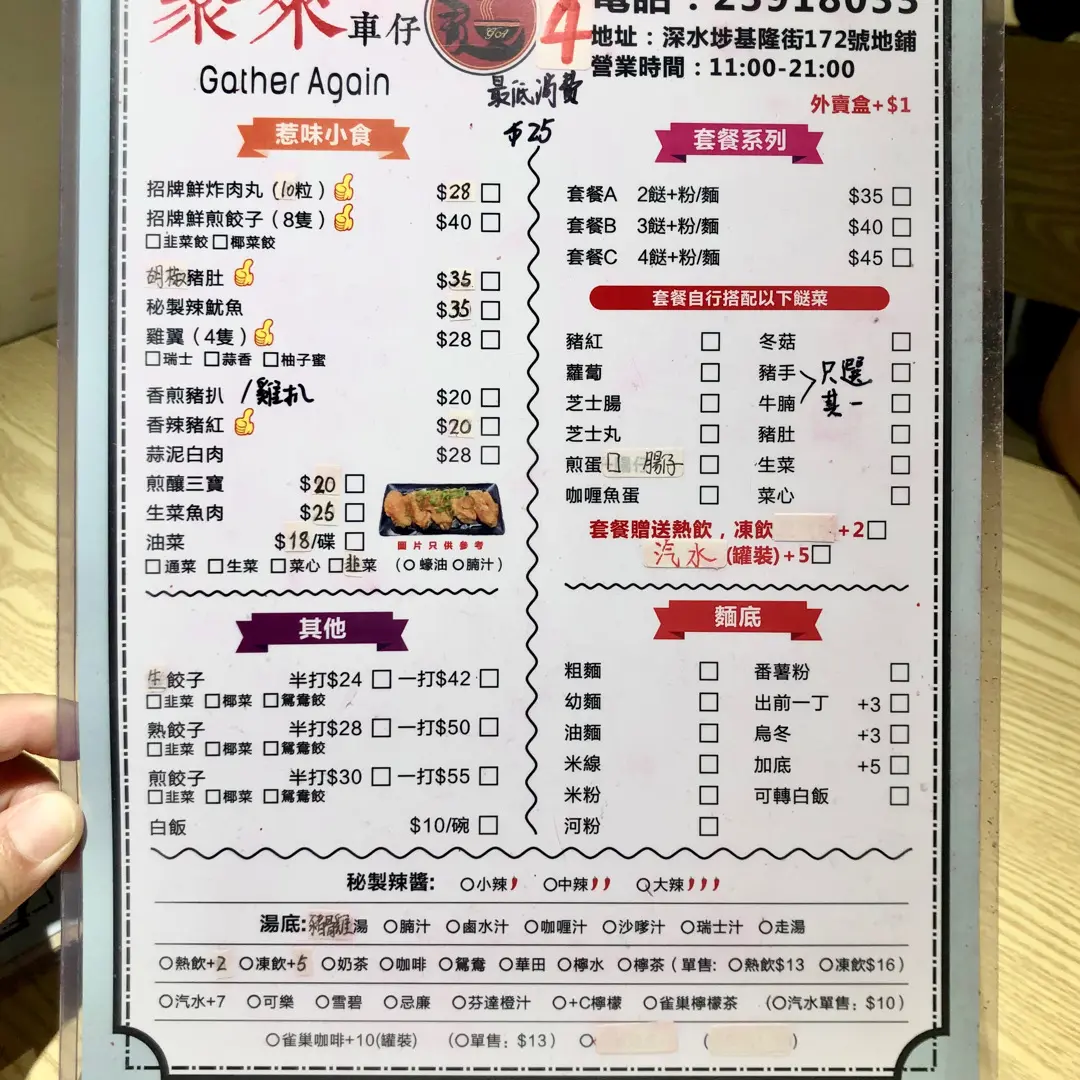 聚來車仔
Gather Again
4
電話：25918033
地址：深水埗基隆街172號地鋪
營業時間：11:00-21:00
最低消費
$25
外賣盒+$1
惹味小食
招牌鮮炸肉丸（10粒） $28
招牌鮮煎餃子（8隻） $40
韭菜餃 椰菜餃
胡椒豬肚 $35
秘製辣魷魚 $35
雞翼（4隻） $28
瑞士 蒜香 柚子蜜
香煎豬扒 /雞扒 $20
香辣豬紅 $20
蒜泥白肉 $28
煎釀三寶 $20
生菜魚肉 $25
油菜 $18/碟
圖片只供參考
通菜 生菜 菜心 韭菜 （蠔油 腩汁）
其他
生餃子 半打$24 一打$42
韭菜 椰菜 鴛鴦餃
熟餃子 半打$28 一打$50
韭菜 椰菜 鴛鴦餃
煎餃子 半打$30 一打$55
韭菜 椰菜 鴛鴦餃
白飯 $10/碗
套餐系列
套餐A 2餸+粉/麵 $35
套餐B 3餸+粉/麵 $40
套餐C 4餸+粉/麵 $45
套餐自行搭配以下餸菜
豬紅 冬菇
蘿蔔 豬手
芝士腸 牛腩
只選
其一
芝士丸 豬肚
煎蛋 腸仔 生菜
咖喱魚蛋 菜心
套餐贈送熱飲，凍飲+2
汽水(罐裝)+5
麵底
粗麵 番薯粉
幼麵 出前一丁 +3
油麵 烏冬 +3
米線 加底 +5
米粉 可轉白飯
河粉
秘製辣醬: 小辣 中辣 大辣
湯底: 湯 腩汁 鹵水汁 咖喱汁 沙嗲汁 瑞士汁 走湯
熱飲+2 凍飲+5 奶茶 咖啡 鴛鴦 華田 檸水 檸茶（單售: 熱飲$13 凍飲$16）
汽水+7 可樂 雪碧 忌廉 芬達橙汁 +C檸檬 雀巢檸檬茶 （汽水單售: $10）
雀巢咖啡+10(罐裝) （單售: $13） ( )